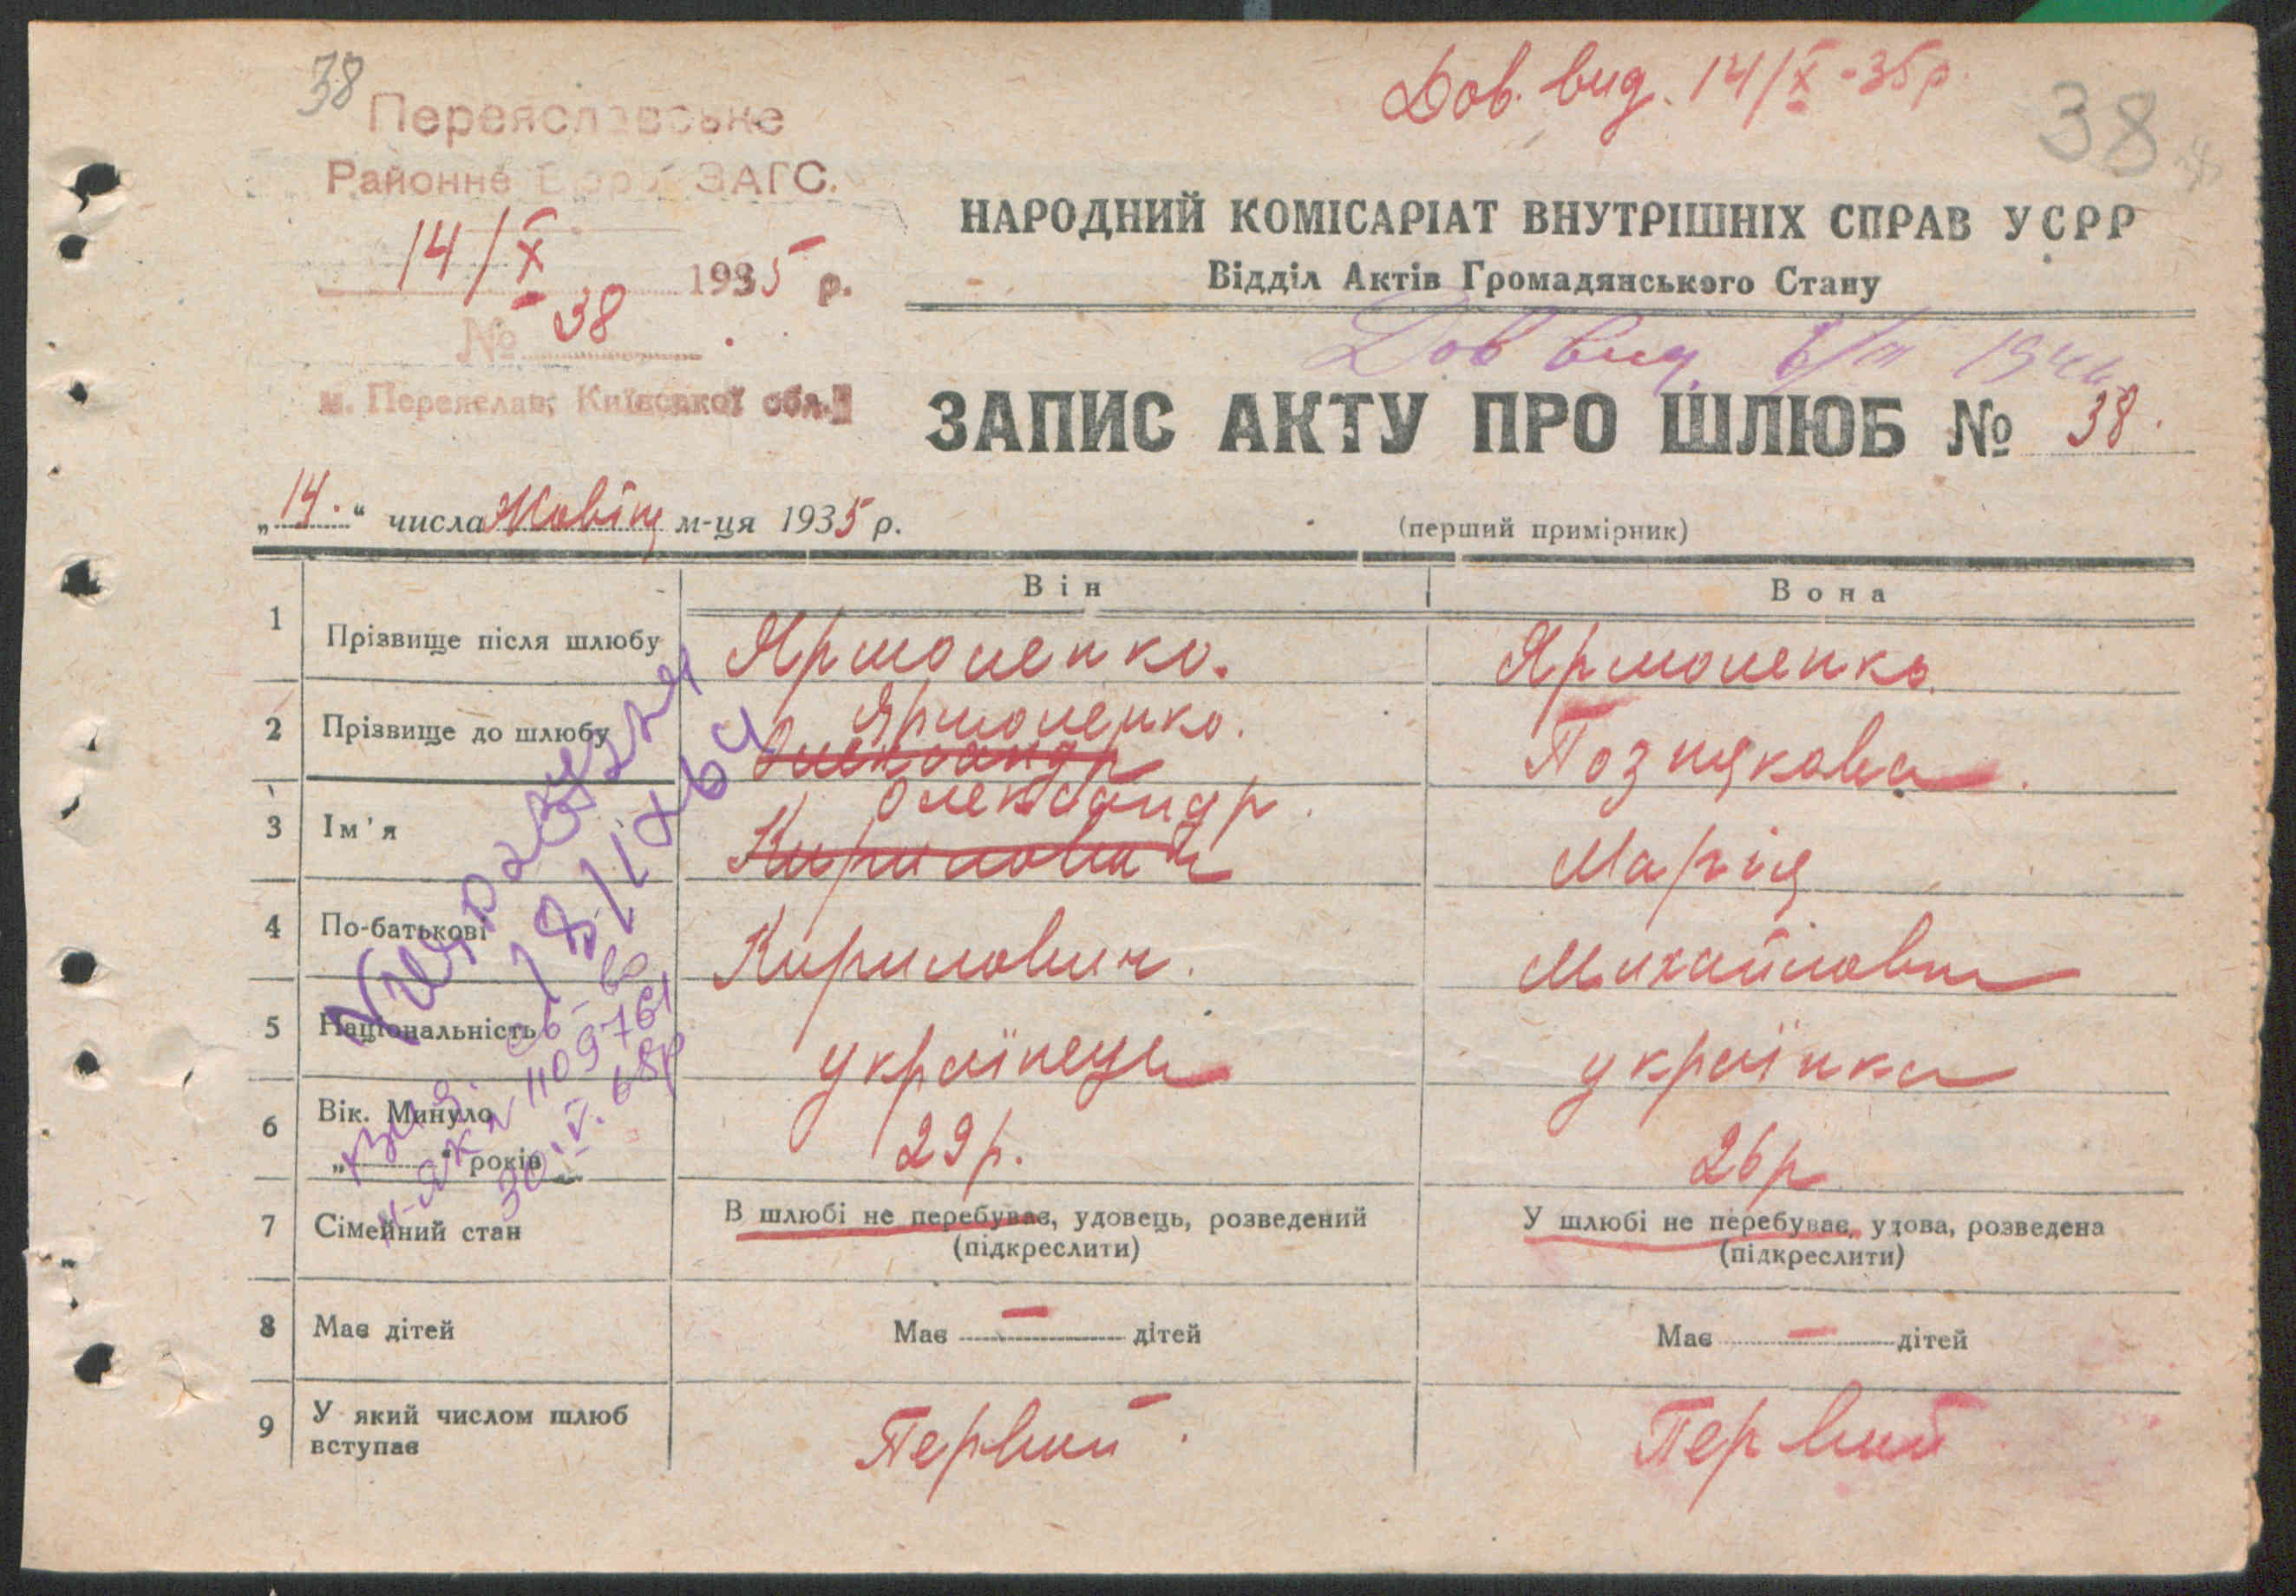 38
Переяславське
Районне Бюро ЗАГС.
14/X 1935 р.
№ 38
м. Переяслав, Київської обл.
Дов. вид. 14/X-35р
38
НАРОДНИЙ КОМІСАРІАТ ВНУТРІШНІХ СПРАВ УСРР
Відділ Актів Громадянського Стану
Дов вид
ЗАПИС АКТУ ПРО ШЛЮБ № 38.
„14." числа Жовтня м-ця 1935 р.
(перший примірник)
Він
Вона
1 Прізвище після шлюбу Ярмоленко. Ярмоленко.
2 Прізвище до шлюбу Ярмоленко. Познякова.
Олександр
3 Ім'я Олександр. Марія
Кирилович
4 По-батькові Кирилович. Михайловна
5 Національність українець українка
6 Вік. Минуло
„ " років 29р. 26р
7 Сімейний стан В шлюбі не перебуває, удовець, розведений У шлюбі не перебуває, удова, розведена
(підкреслити) (підкреслити)
8 Має дітей Має — дітей Має — дітей
9 У який числом шлюб
вступає Первий. Первий
св-во
N 1109761
30.V.68р